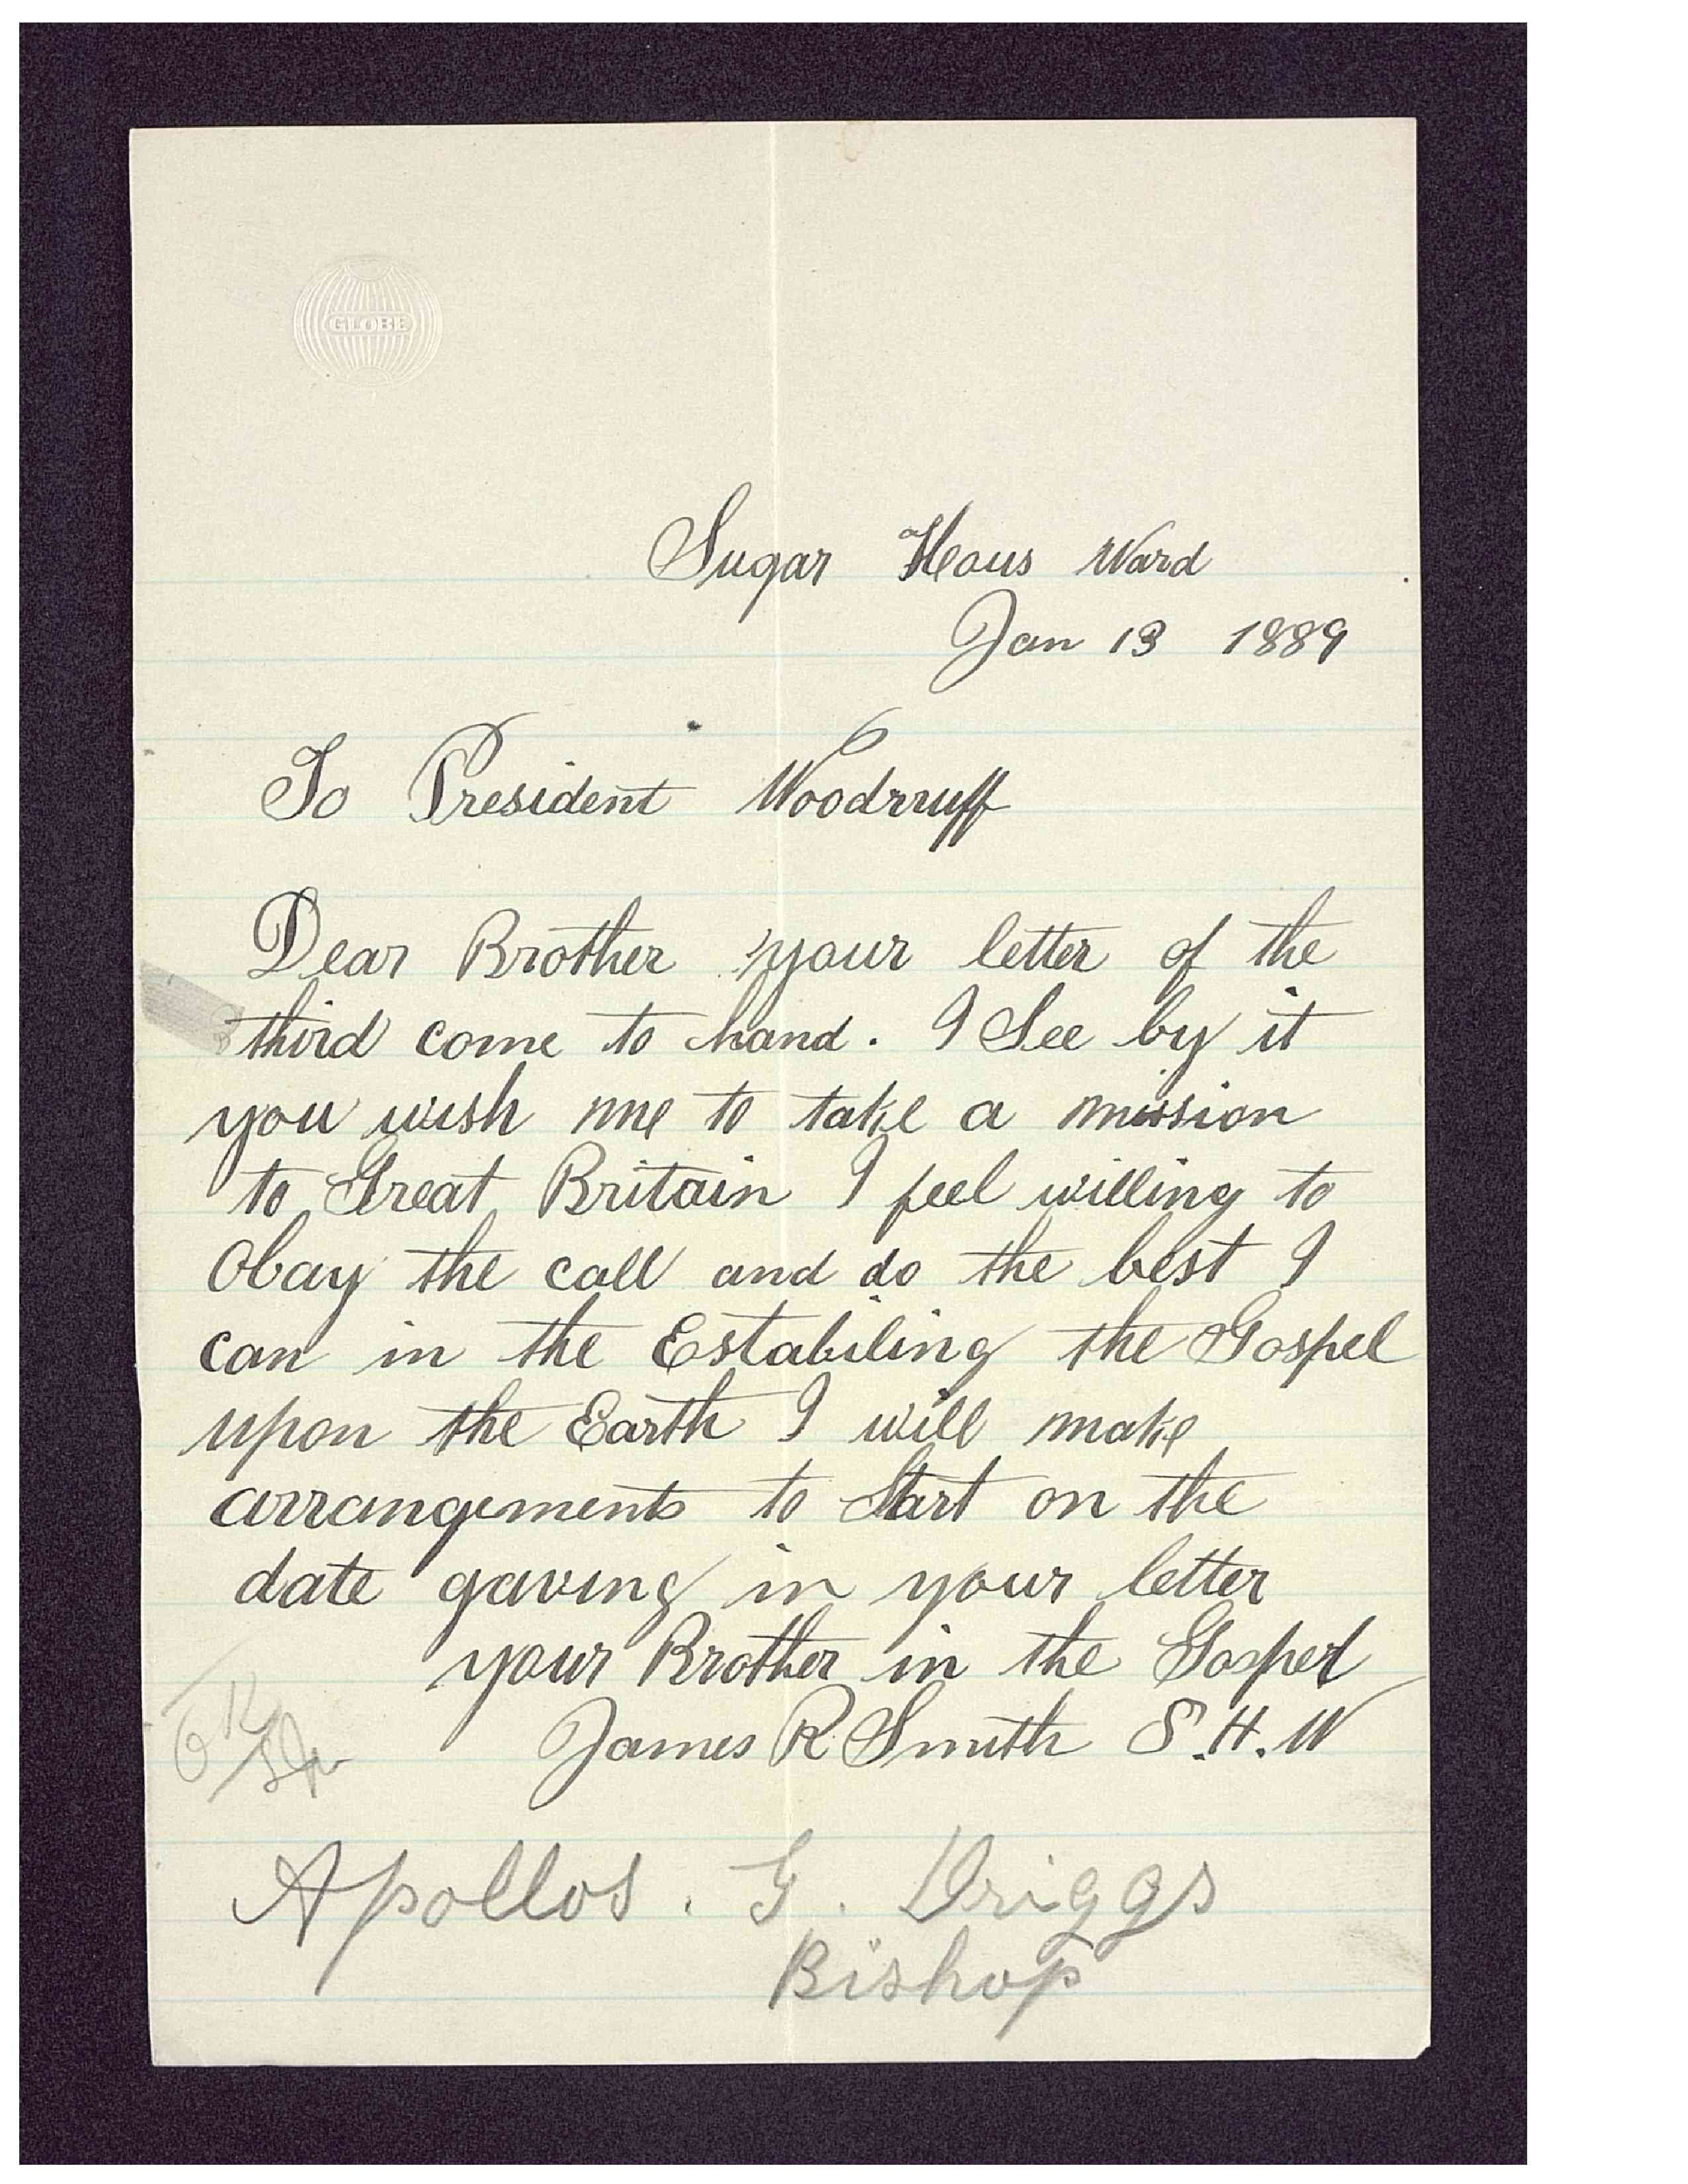 GLOBE
Sugar Hous Ward
Jan 13 1889
To President Woodrruff
Dear Brother your letter of the
third come to hand. I See by it
you wish me to take a mission
to Great Britain I feel willing to
Obay the call and do the best I
can in the Estabiling the Gospel
upon the Earth I will make
arrangements to Start on the
date gaving in your letter
your Brother in the Gospel
James R Smith S.H.W
Apollos. G. Driggs
Bishop